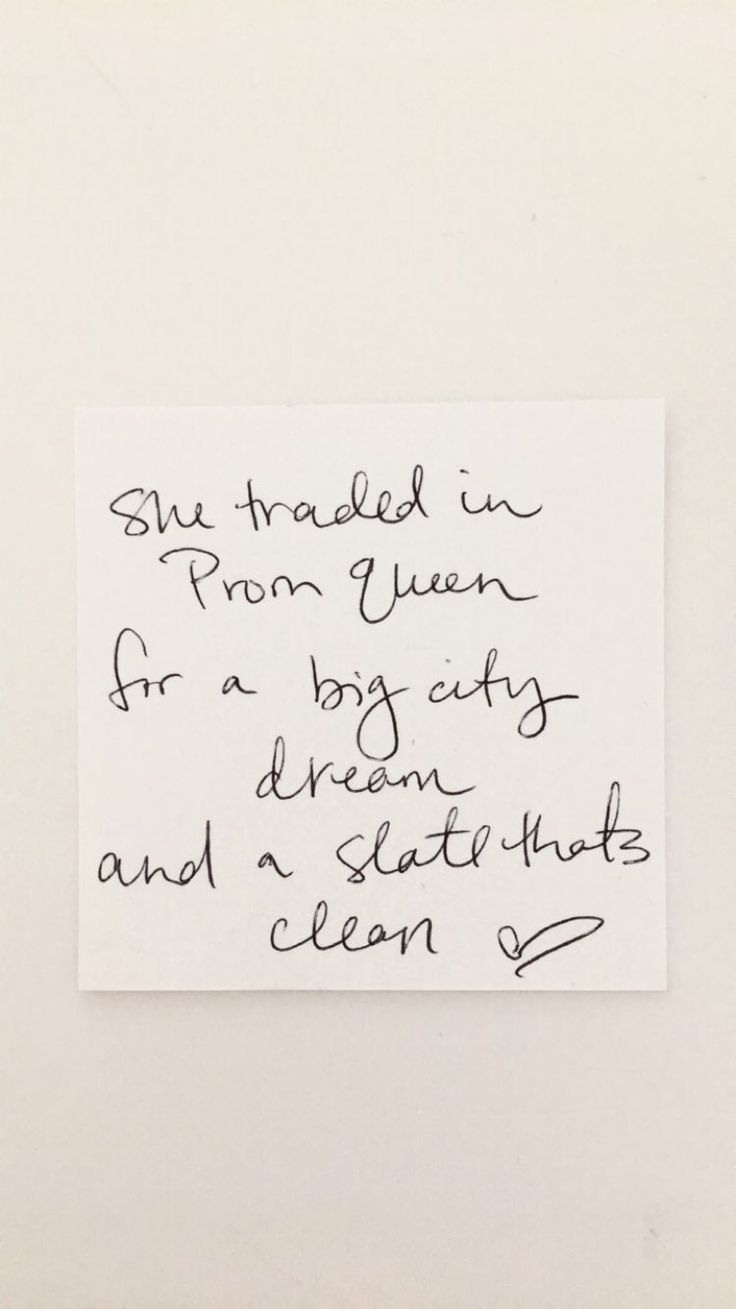 she traded in
Prom queen
for a big city
dream
and a slate thats
clean ♡